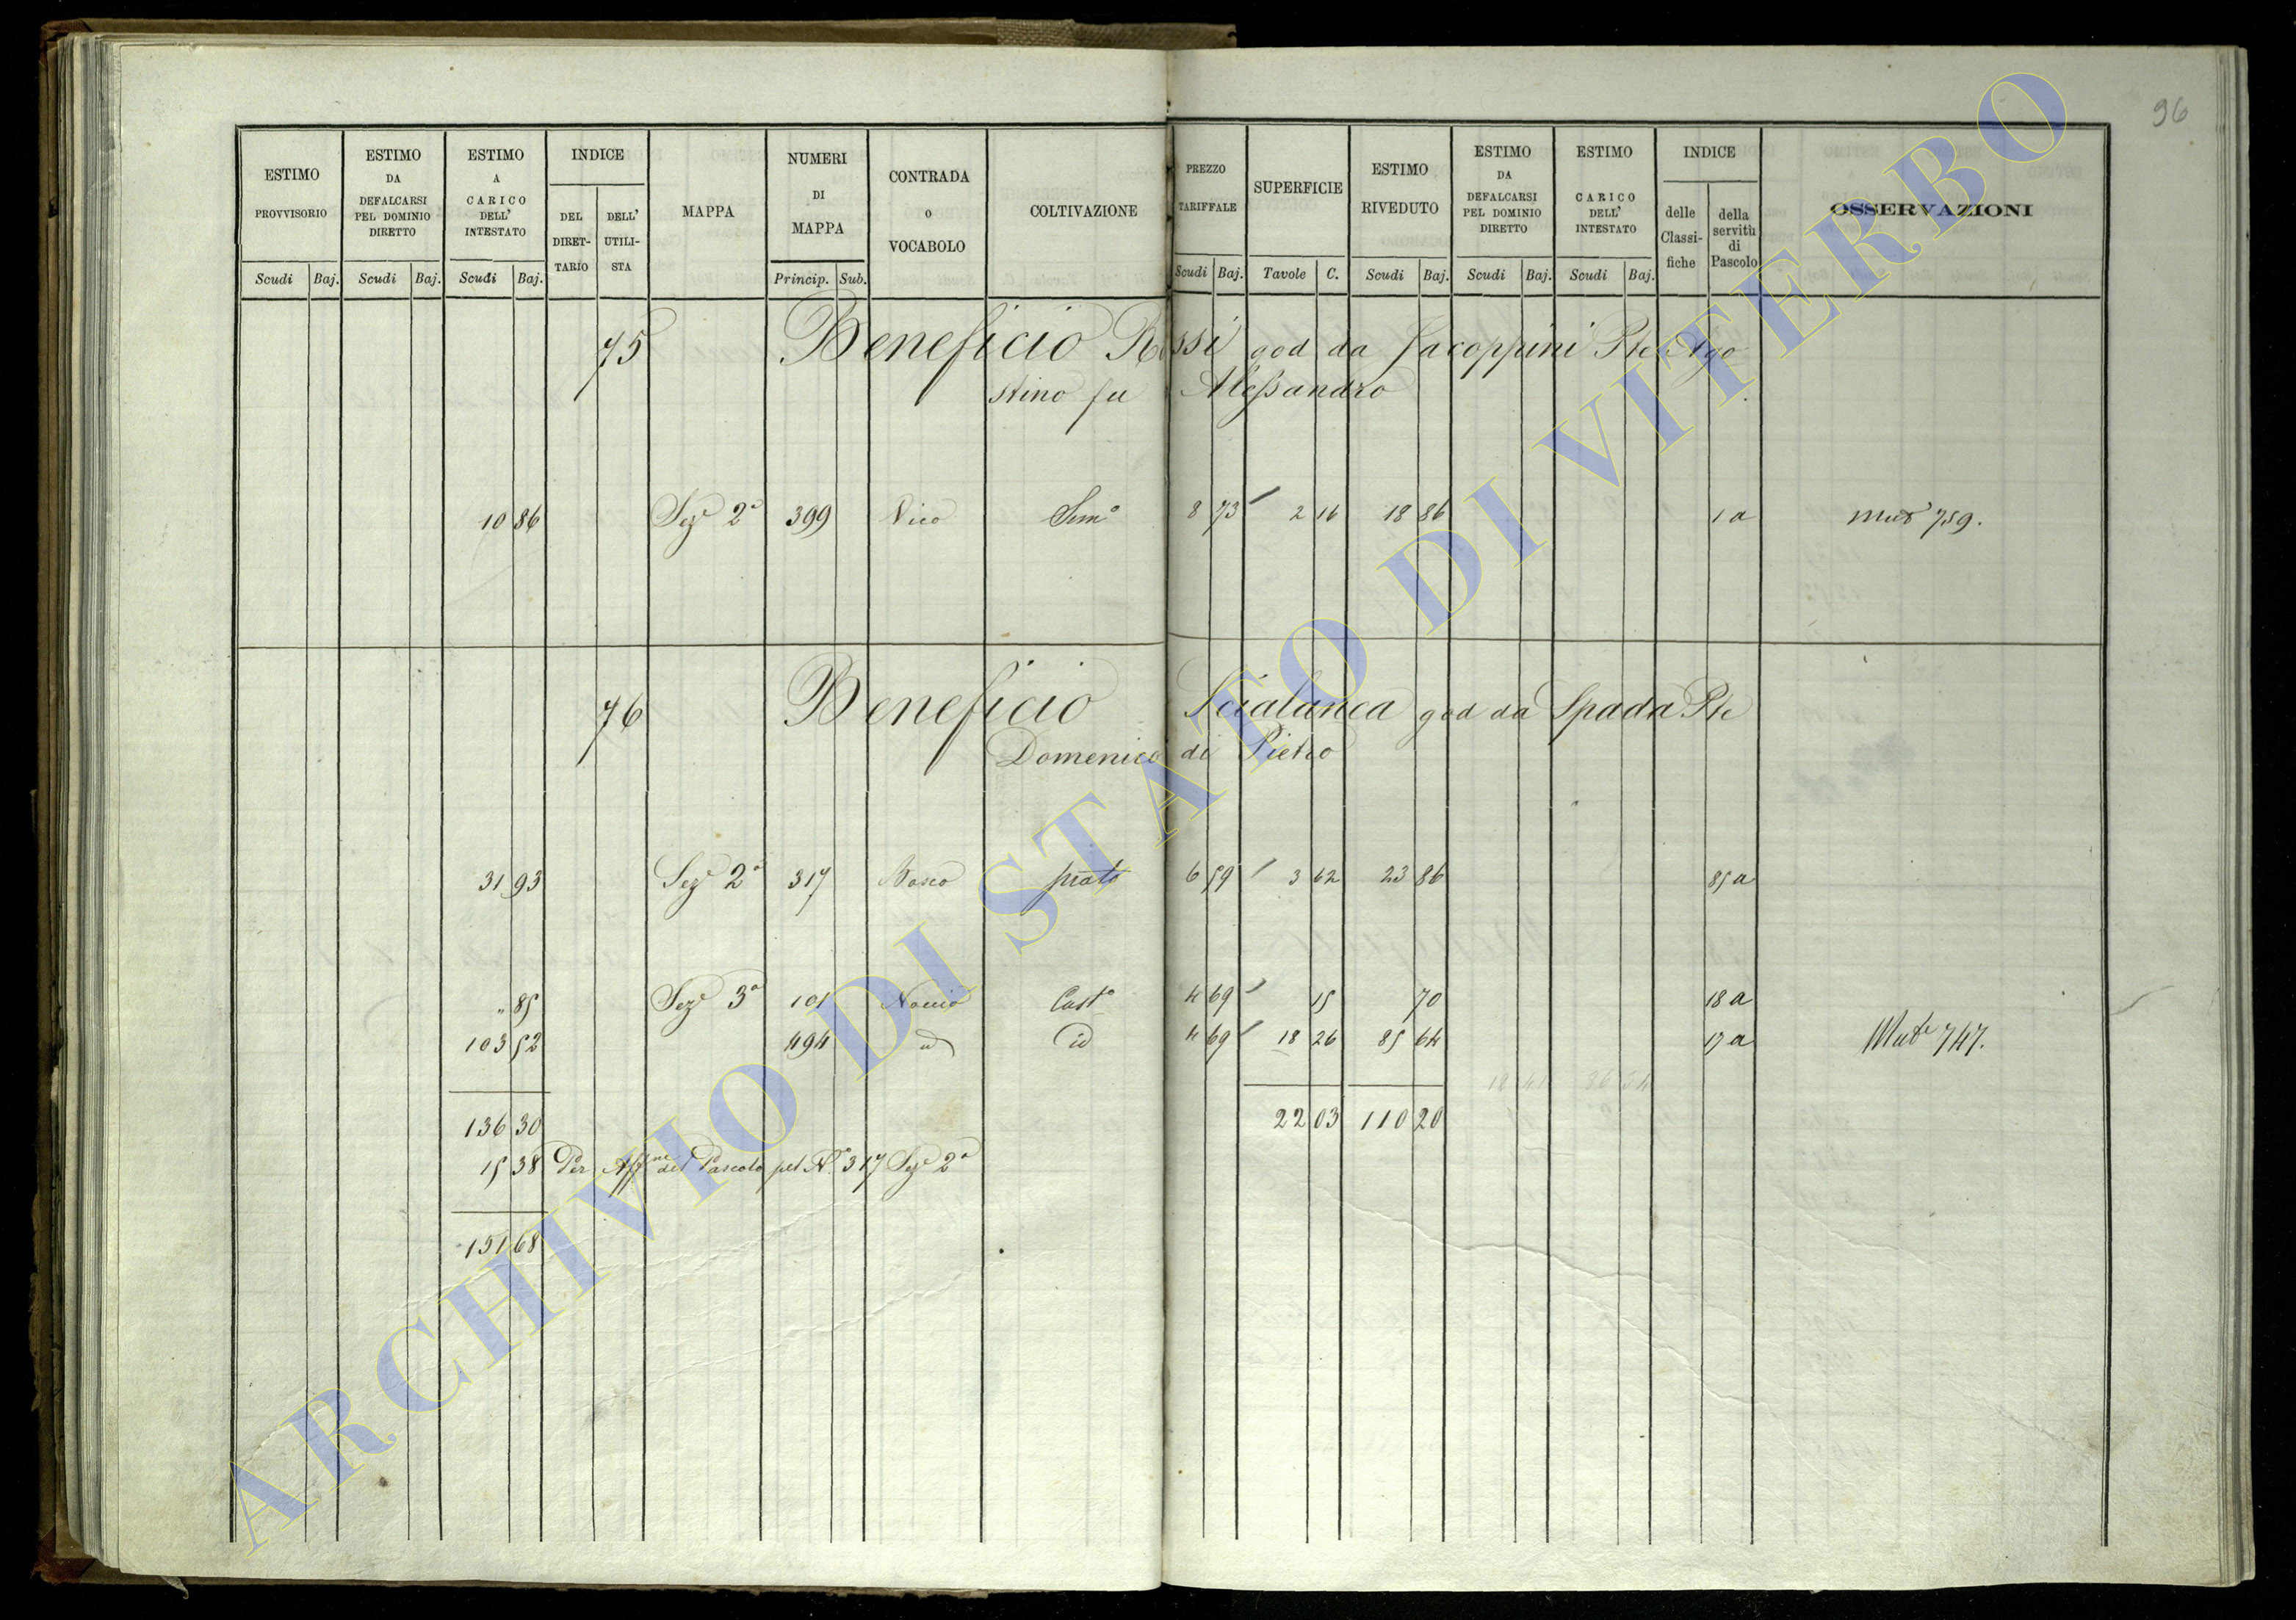 96
ESTIMO PROVVISORIO Scudi Baj.
ESTIMO DA DEFALCARSI PEL DOMINIO DIRETTO Scudi Baj.
ESTIMO A CARICO DELL' INTESTATO Scudi Baj.
INDICE DEL DIRET-TARIO DELL' UTILI-STA
MAPPA
NUMERI DI MAPPA Princip. Sub.
CONTRADA o VOCABOLO
COLTIVAZIONE
PREZZO TARIFFALE Scudi Baj.
SUPERFICIE Tavole C.
ESTIMO RIVEDUTO Scudi Baj.
ESTIMO DA DEFALCARSI PEL DOMINIO DIRETTO Scudi Baj.
ESTIMO CARICO DELL' INTESTATO Scudi Baj.
INDICE delle Classi-fiche della servitù di Pascolo
OSSERVAZIONI
75 Beneficio Rossi god da Jacoppini Pte Ago
stino fu Alessandro
10 86 Seze 2a 399 Vico Semo 8 73 2 16 18 86 1 a Mute 759.
76 Beneficio Scialanca god da Spada Pte
Domenico di Pietro
31 93 Seze 2a 317 Bosco prato 6 59 3 62 23 86 85 a
" 85 Seze 3a 101 Casto 4 69 15 70 18 a
103 52 494 id id 4 69 18 26 85 64 17 a Mute 747.
136 30 22 03 110 20
15 38 Per Affne del Pascolo pel No 317 Seze 2a
151 68
ARCHIVIO DI STATO DI VITERBO